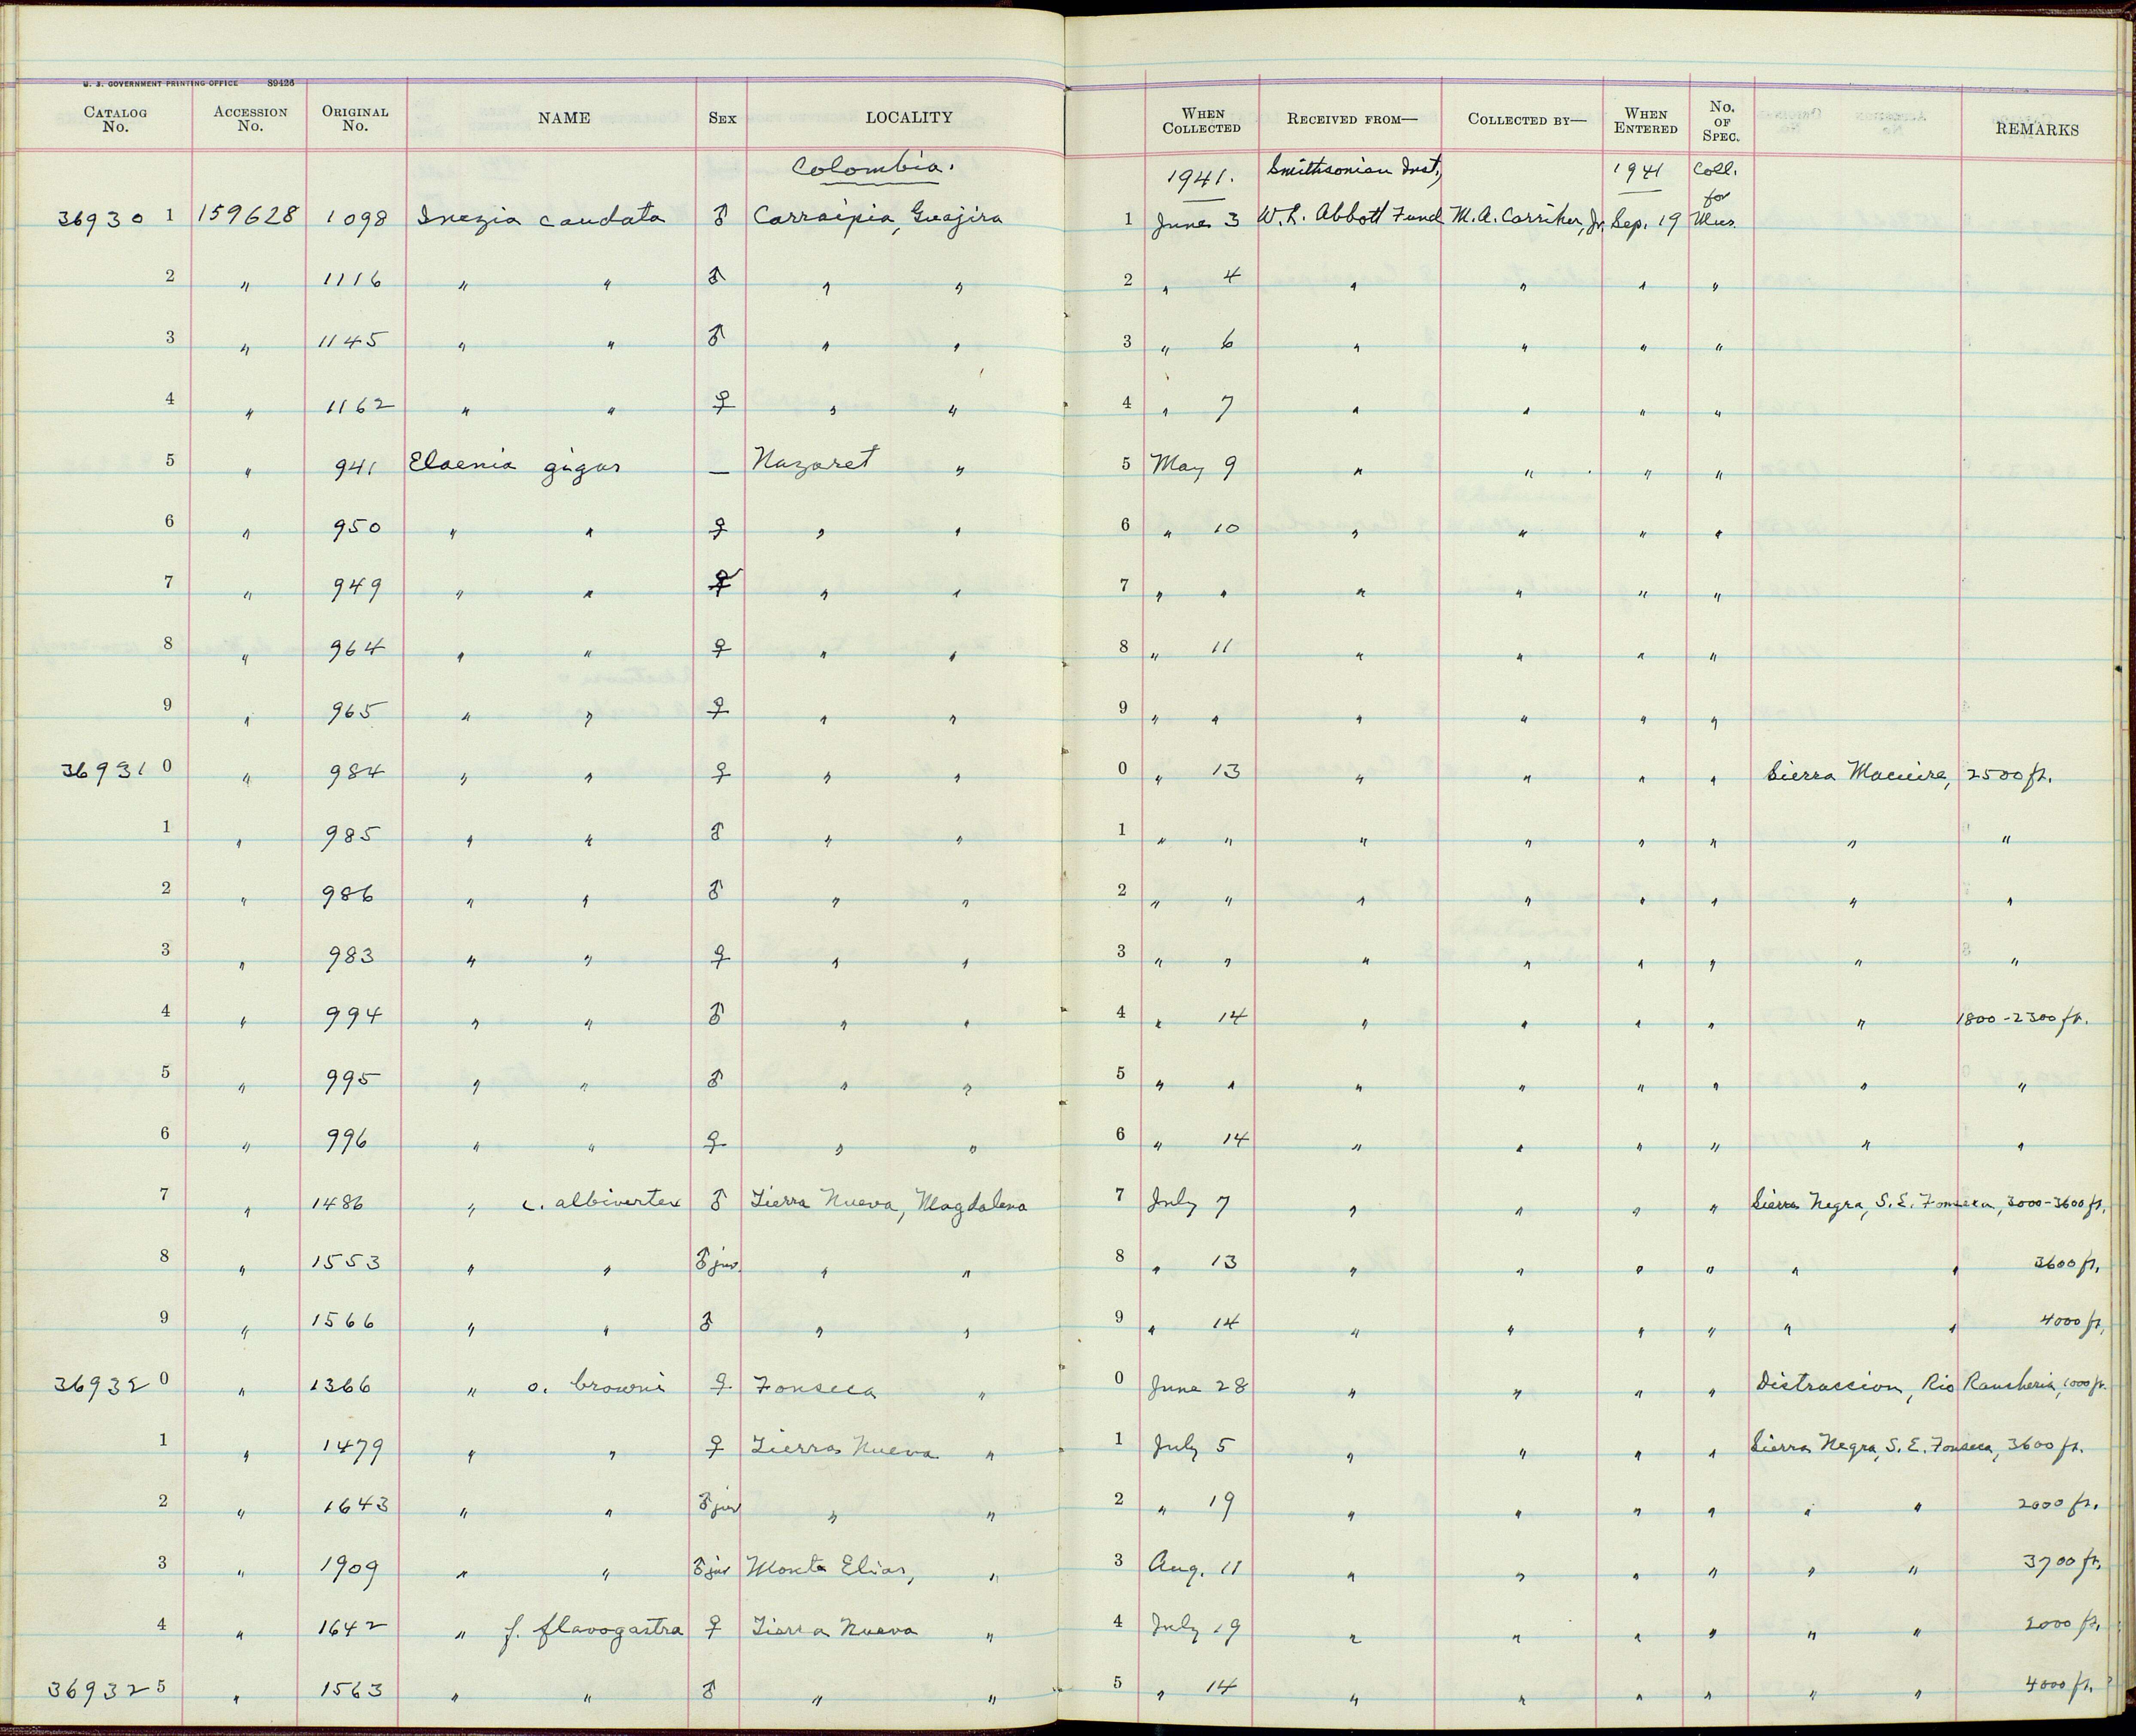 U. S. GOVERNMENT PRINTING OFFICE 89426
CATALOG No. ACCESSION No. ORIGINAL No. NAME SEX LOCALITY WHEN COLLECTED RECEIVED FROM— COLLECTED BY— WHEN ENTERED No. OF SPEC. REMARKS
Colombia. 1941. Smithsonian Inst., 1941 Coll. for
36930 1 159628 1098 Inezia caudata ♂ Carraipia, Guajira 1 June 3 W. L. Abbott Fund M. A. Carriker, Jr. Sep. 19 Mus.
2 " 1116 " " ♂ " " 2 " 4 " " " "
3 " 1145 " " ♂ " " 3 " 6 " " " "
4 " 1162 " " ♀ " " 4 " 7 " " " "
5 " 941 Elaenia gigas — Nazaret " 5 May 9 " " " "
6 " 950 " " ♀ " " 6 " 10 " " " "
7 " 949 " " ♀ " " 7 " " " " " "
8 " 964 " " ♀ " " 8 " 11 " " " "
9 " 965 " " ♀ " " 9 " " " " " "
36931 0 " 984 " " ♀ " " 0 " 13 " " " " Sierra Macuire, 2500 ft.
1 " 985 " " ♂ " " 1 " " " " " " " "
2 " 986 " " ♂ " " 2 " " " " " " " "
3 " 983 " " ♀ " " 3 " " " " " " " "
4 " 994 " " ♂ " " 4 " 14 " " " " " 1800-2300 ft.
5 " 995 " " ♂ " " 5 " " " " " " " "
6 " 996 " " ♀ " " 6 " 14 " " " " " "
7 " 1486 " c. albivertex ♂ Tierra Nueva, Magdalena 7 July 7 " " " " Sierra Negra, S. E. Fonseca, 3000-3600 ft.
8 " 1553 " " ♂ juv. " " 8 " 13 " " " " " " 3600 ft.
9 " 1566 " " ♂ " " 9 " 14 " " " " " " 4000 ft.
36932 0 " 1366 " o. browni ♀ Fonseca " 0 June 28 " " " " Distraccion, Rio Rancheria, 1000 ft.
1 " 1479 " " ♀ Tierra Nueva " 1 July 5 " " " " Sierra Negra, S. E. Fonseca, 3600 ft.
2 " 1643 " " ♂ juv " " 2 " 19 " " " " " " 2000 ft.
3 " 1909 " " ♂ juv Monte Elias, " 3 Aug. 11 " " " " " " 3700 ft.
4 " 1642 " f. flavogastra ♀ Tierra Nueva " 4 July 19 " " " " " " 2000 ft.
36932 5 " 1563 " " ♂ " " 5 " 14 " " " " " " 4000 ft.